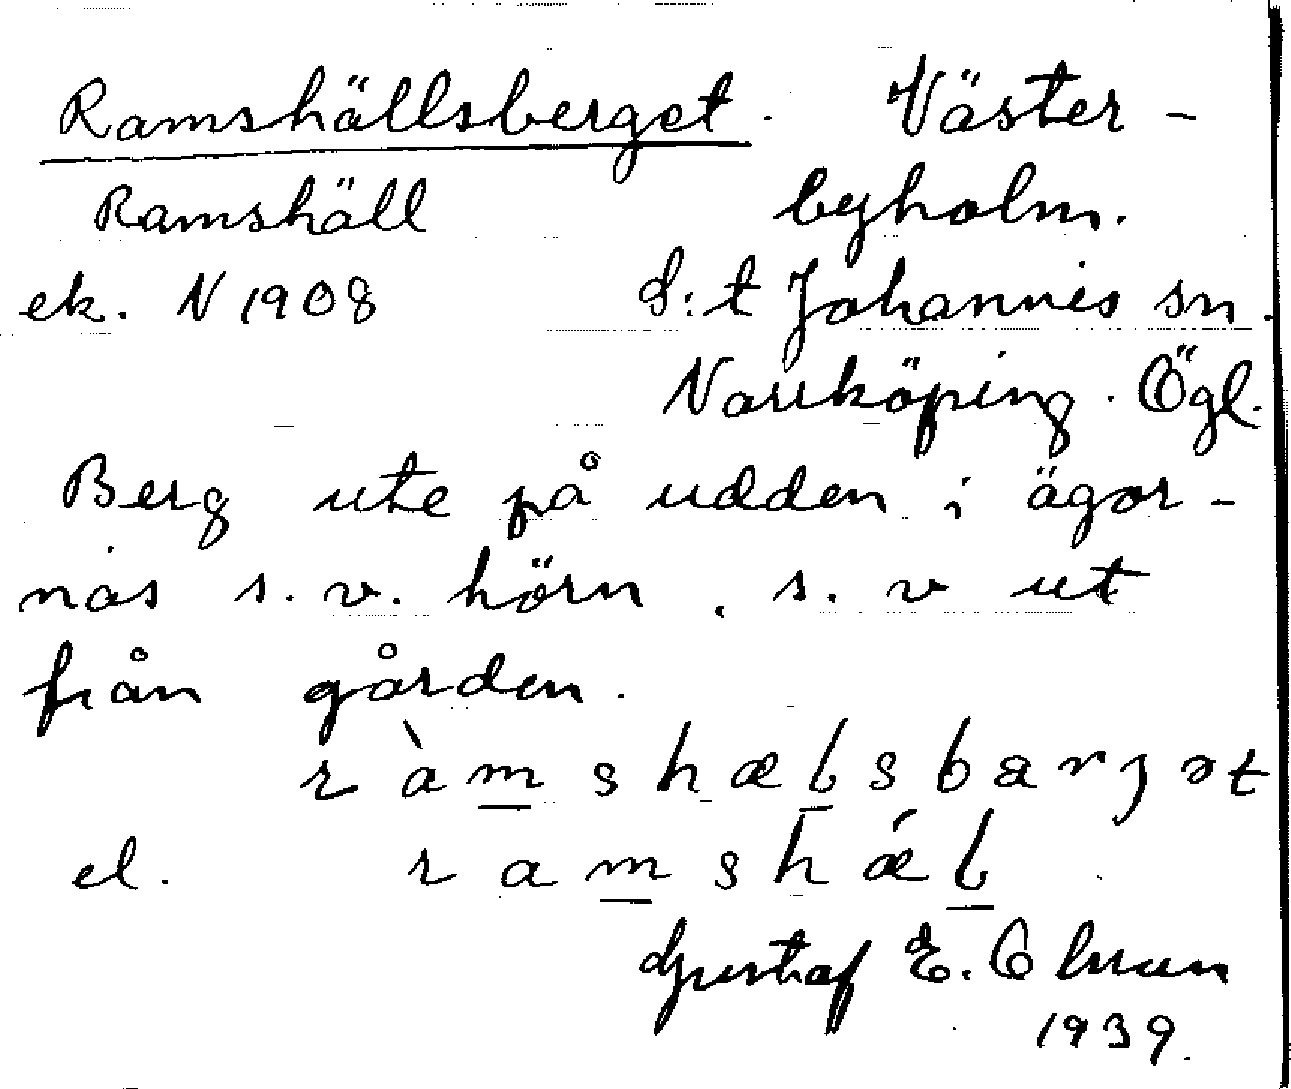 Ramshällsberget. Väster-
Ramshäll byholm.
ek. N 1908 S:t Johannis sn.
Norrköping. Ögl.
Berg ute på udden i ägor-
nas s.v. hörn, s.v ut
från gården.
ràmshælsbarjət
el. ramshǽl
Gustaf E. Olsson
1939.